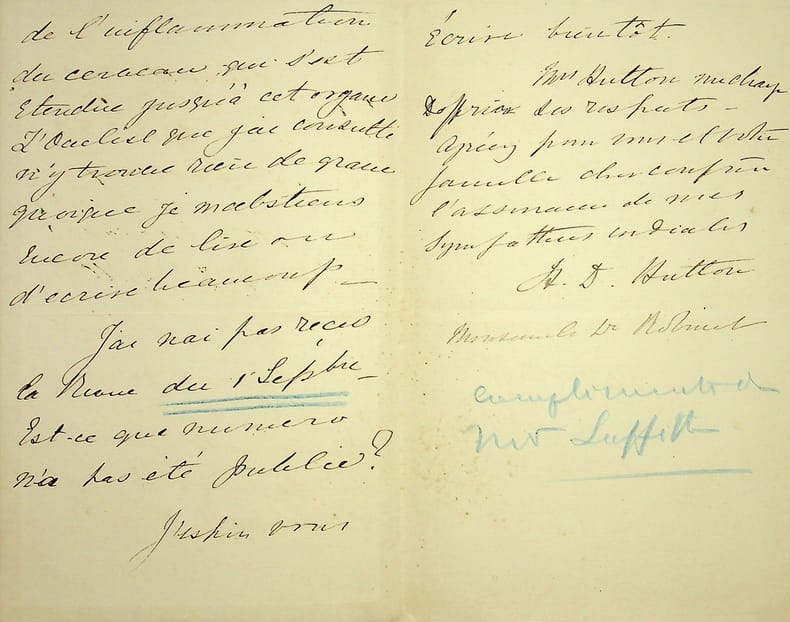 de l'inflammation
du cerveau qui s'est
Etendue jusqu'à cet organe
L'Oculist que j'ai consulté
n'y trouve rien de grave
quoique je m'abstiens
Encore de lire ou
d'ecrire beaucoup —
J'ai n'ai pas reçu
la Revue du 1 Septbre —
Est-ce que numero
n'a pas été publié?
J'espère vous
Écrire bientôt.
Mrs Hutton me charge
ses respects —
Agréez pour vous et votre
famille cher confrère
l'assurance de mes
Sympathies cordiales
H. D. Hutton
Monsieur le Dr Robinet
compliments de